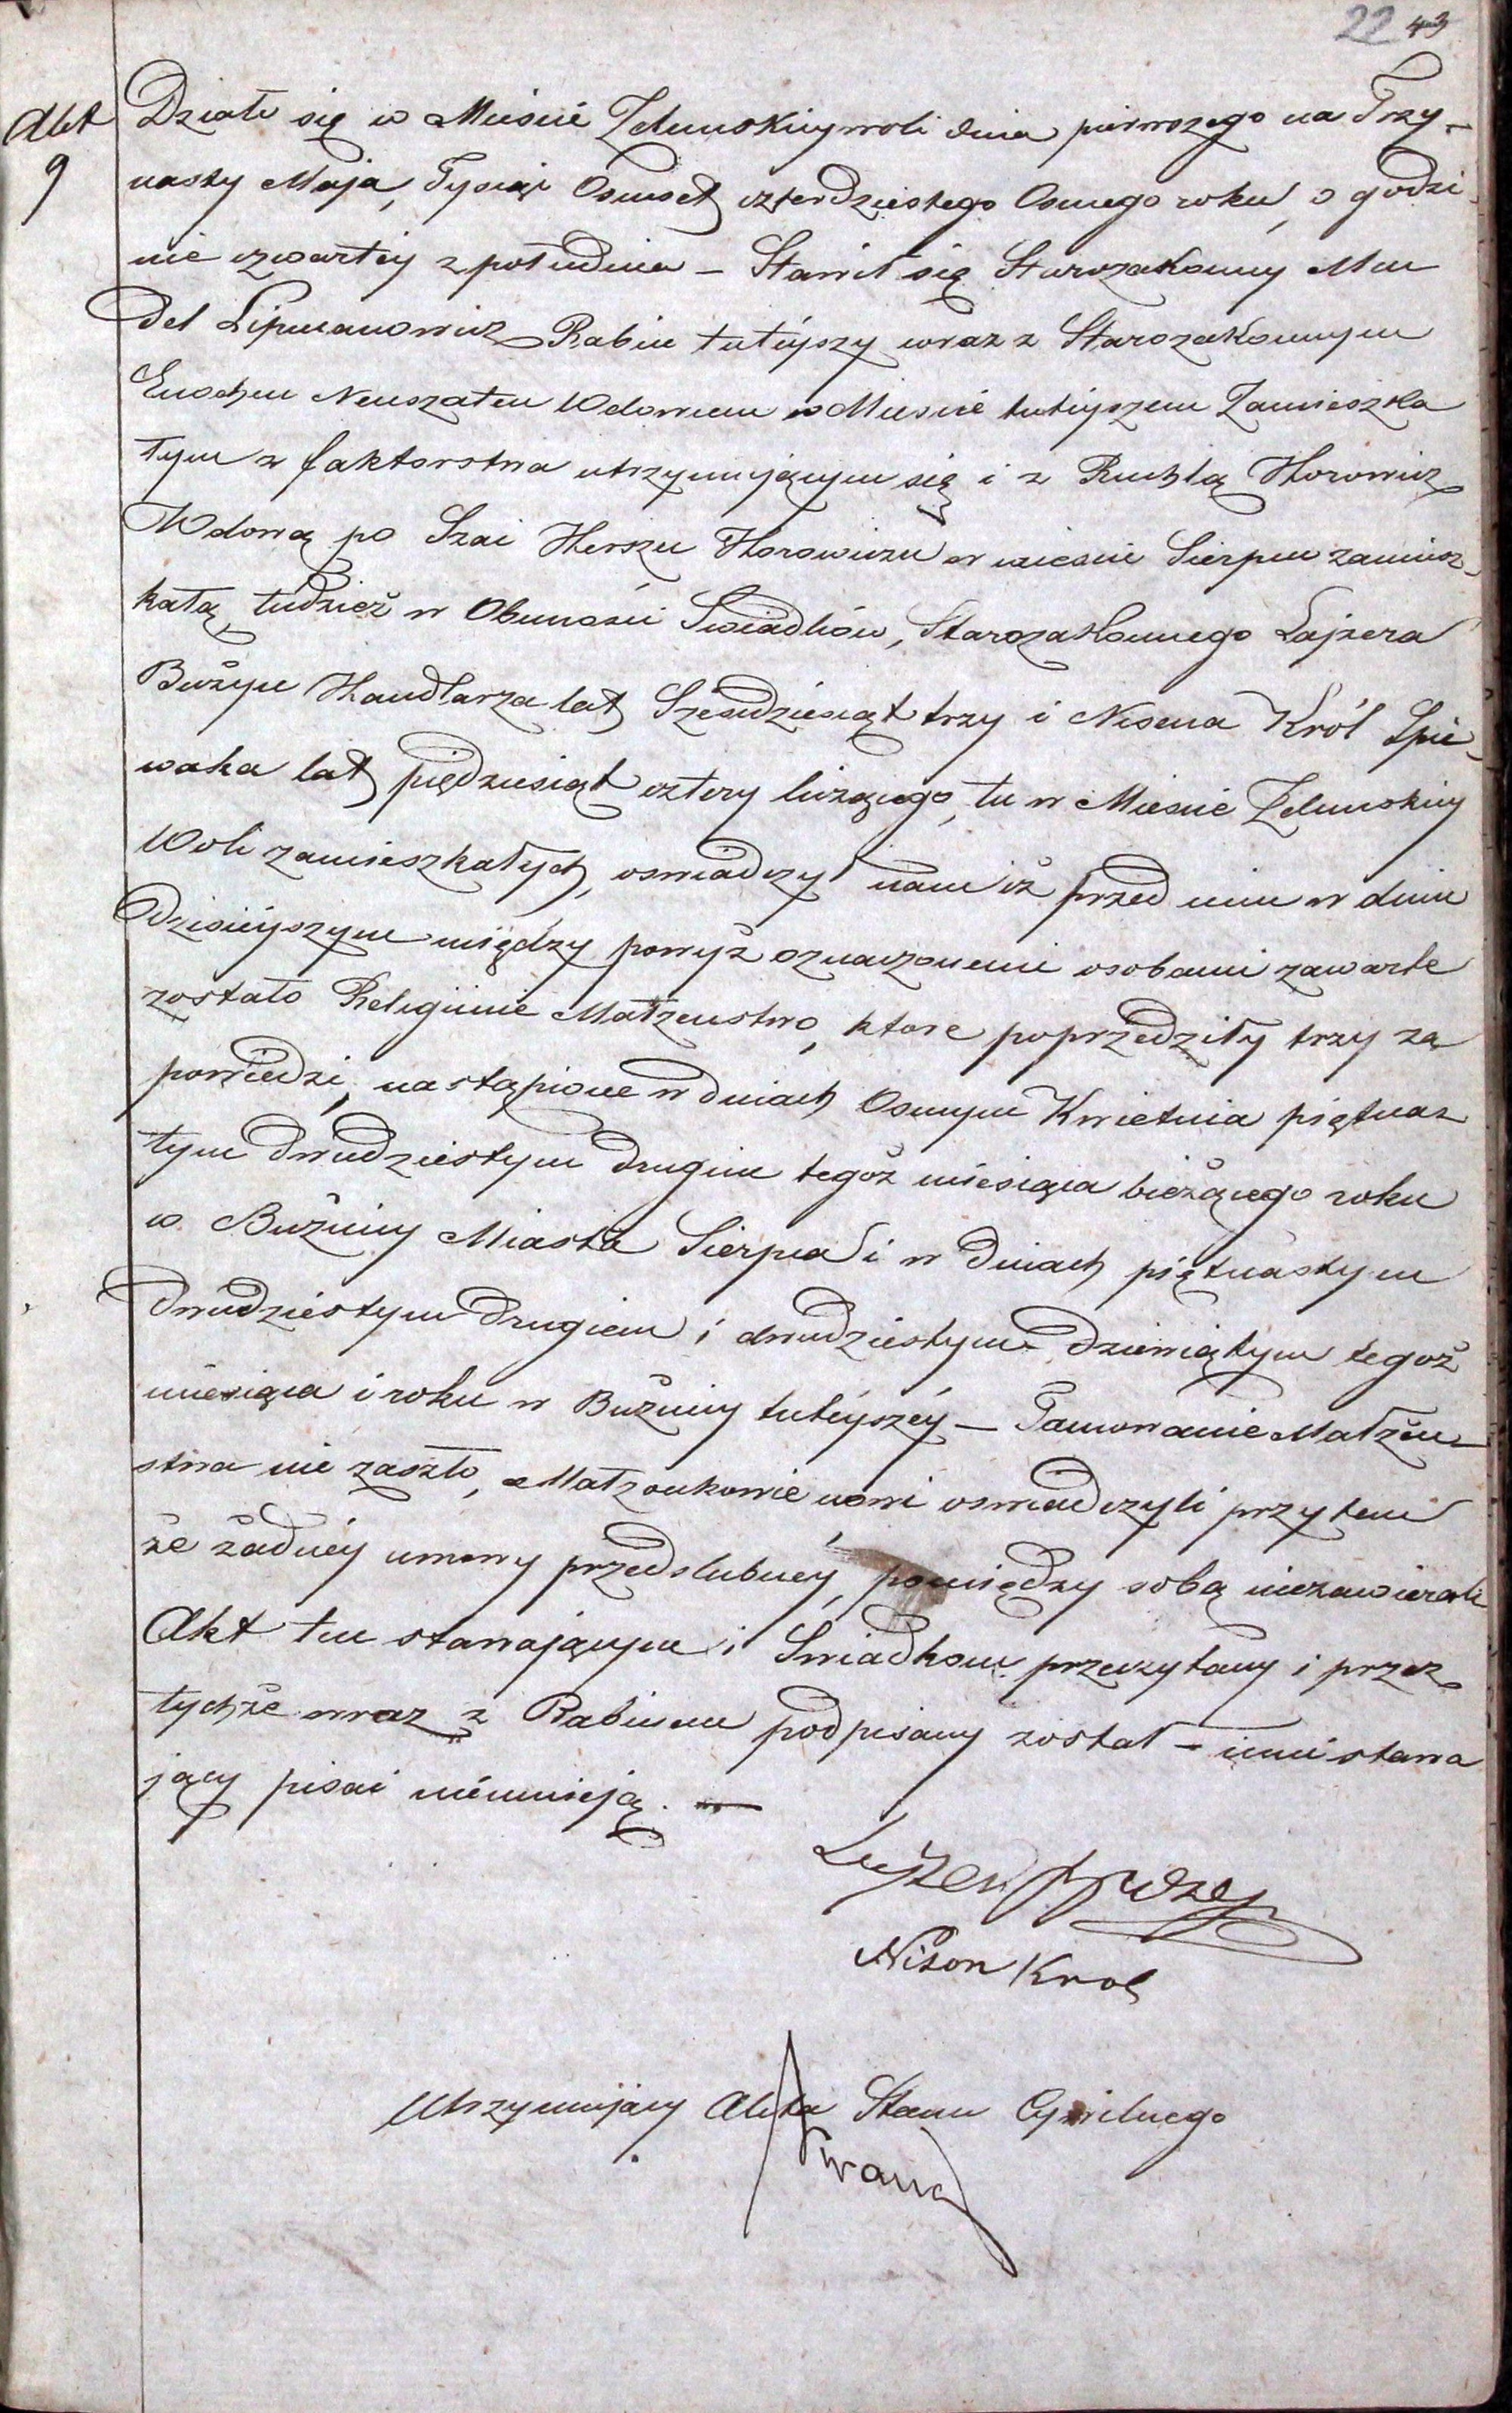 22 43
Akt Działo się w Mieście Zdunskiywoli dnia pierwszego na Trzy-
9 nasty Maja, Tysiąc Osmset czterdziestego Osmego roku, o godzi
nie czwartéy z południa – Stawił się Starozakonny Men
del Lipmanowicz Rabin tutéyszy wraz z Starozakonnym
Enochem Neuszatem Wdowcem w Mieście tutéyszem Zamieszka
łym z faktorstwa utrzymującym się i z Ruchlą Horowicz
Wdową po Szai Herszu Horowiczu w mieście Sierpcu zamiesz-
kałą, tudzież w Obecności Swiadków, Starozakonnego Lajzera
Bużyn Handlarza lat Szesćdziesiąt trzy i Nisena Król Spie-
waka lat pięćdziesiąt cztery liczącego, tu w Mieście Zdunskiey
Woli zamieszkałych, oswiadczył nam iż przed nim w dniu
dzisiéyszym między powyż oznaczonemi osobami zawarte
zostało Religiinie Małżenstwo, ktore poprzedziły trzy za
powiedzi, nastąpione w dniach Osmym Kwietnia piętnas
tym dwudziestym drugim tegoż miesiąca bieżącego roku
w Bużnicy Miasta Sierpca i w dniach piętnastym
dwudziestym drugiem i dwudziestym dziewiątym tegoż
miesiąca i roku w Bużnicy tutéyszéy – Tamowanie Małżen-
stwa nie zaszło, Małżonkowie nowi oswiadczyli przytem
że żadnéy umowy przedslubnéy, pomiędzy sobą niezawierali
Akt ten stawającym i Swiadkom przeczytany i przez
tychże wraz z Rabinem podpisany został – inni stawa
jący pisać nieumieją. –
Nison Krol
Utrzymujący Akta Stanu Cywilnego